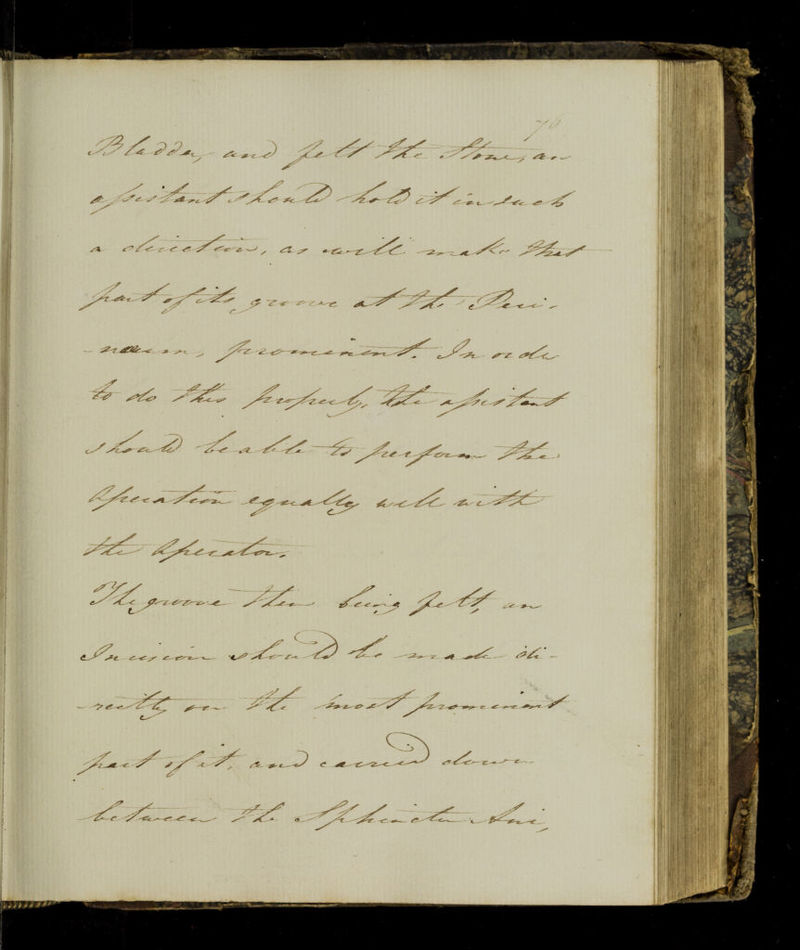 76
Bladder, and felt the Stone, an
assistant should hold it in such
a direction, as will make that
part of its groove at the Peri-
-naeum, prominent. In order
to do this properly, the assistant
should be able to perform the
Operation equally well with
the Operator.
The groove then being felt, an
Incision should be made di-
-rectly on the most prominent
part of it, and carried down
between the Sphincter Ani,